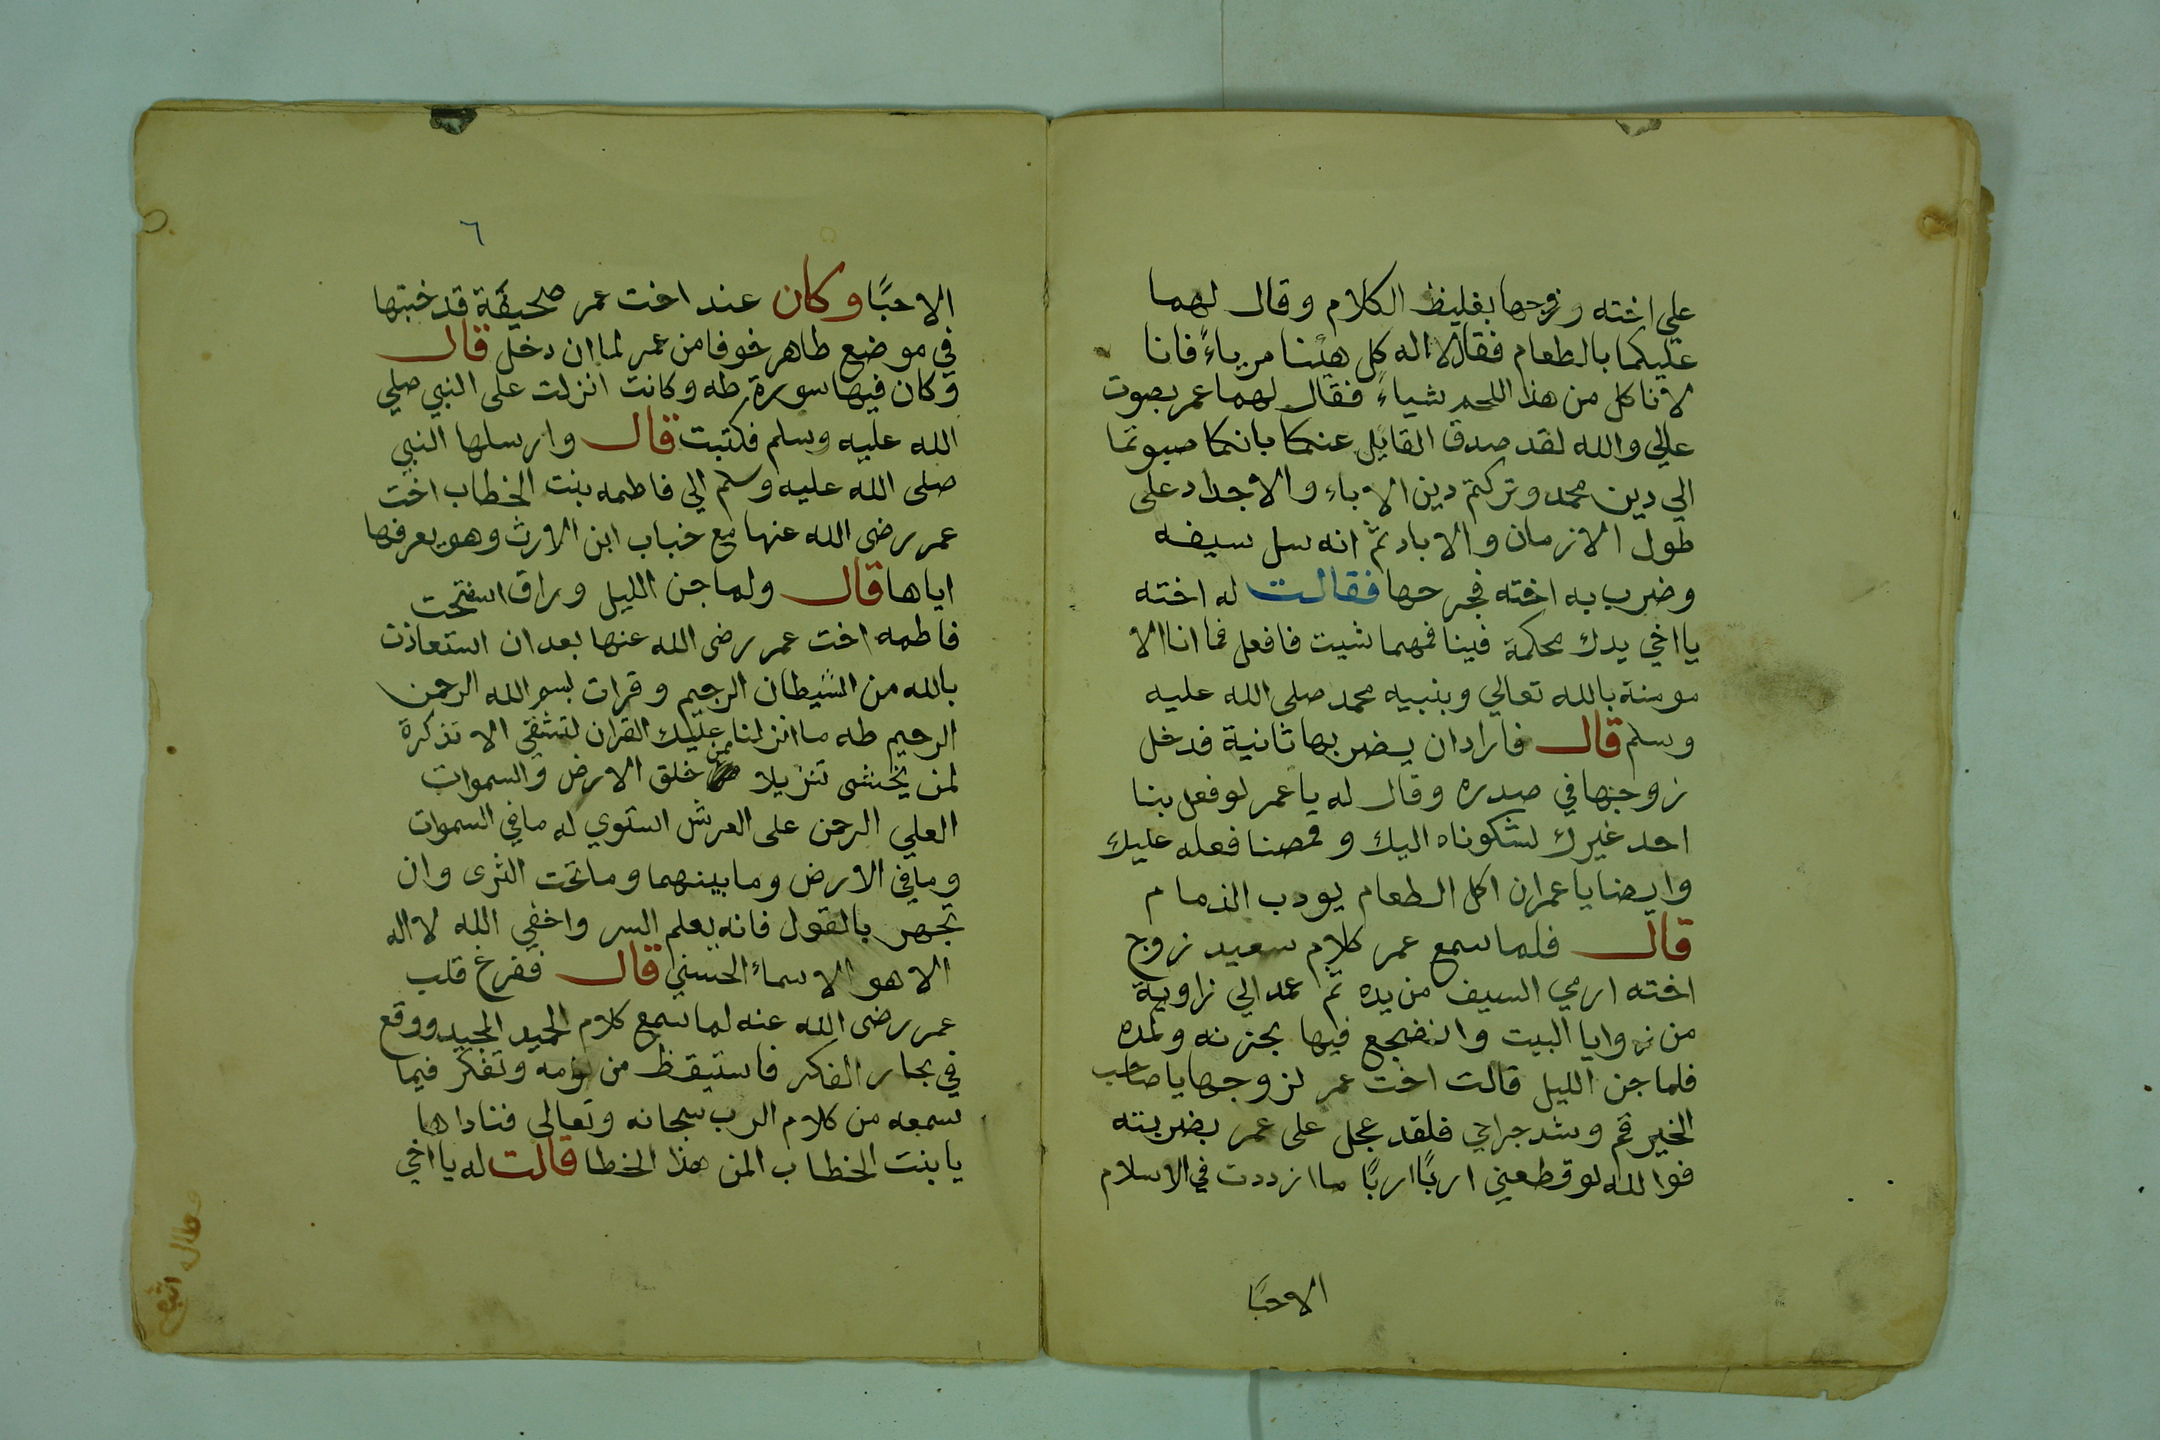 علي اخته وزوجها بغليظ الكلام وقال لهما
عليكما بالطعام فقالا له كل هيئنا مرياءً فانا
لا ناكل من هذا اللحم شياءً فقال لهما عمر بصوت
عالي والله لقد صدق القايل عنكما بانكما صبوتما
الي دين محمد وتركتم دين الاباء والاجداد على
طول الازمان والاباد ثم انه سل سيفه
وضرب به اخته فجرحها فقالت له اخته
يا اخي يدك محكمة فينا فمهما شيت فافعل فما انا الا
مومنة بالله تعالي وبنبيه محمد صلى الله عليه
وسلم قال فاراد ان يضربها ثانية فدخل
زوجها في صدره وقال له يا عمر لو فعل بنا
احد غيرك لشكوناه اليك و فعله عليك
وايضا يا عمر ان اكل الطعام يودب الذمام
قال فلما سمع عمر كلام سعيد زوج
اخته ارمي السيف من يده ثم عمد الي زاوية
من زوايا البيت وانضجع فيها بحزنه
فلما جن الليل قالت اخت عمر لزوجها يا صاحب
الخير قم وشد جراحي فلقد عجل على عمر بضربته
فوالله لو قطعني اربًا اربًا ما ازددت في الاسلام
الاحبًا
٦
الاحبًا وكان عند اخت عمر صحيفة قد خبتها
في موضع طاهر خوفا من عمر لما ان دخل قال
وكان فيها سورة طه وكانت انزلت على النبي صلي
الله عليه وسلم فكتبت قال وارسلها النبي
صلى الله عليه وسلم الي فاطمه بنت الخطاب اخت
عمر رضى الله عنها مع خباب ابن الارث وهو يعرفها
اياها قال ولما جن الليل وراق استفتحت
فاطمه اخت عمر رضى الله عنها بعد ان استعاذت
بالله من الشيطان الرجيم وقرات بسم الله الرحمن
الرحيم طه ما انزلنا عليك القران لتشقي الا تذكرة
لمن يخشى تنزيلا ممن خلق الارض والسموات
العلي الرحمن على العرش استوي له ما في السموات
وما في الارض وما بينهما وما تحت الثرى وان
تجهر بالقول فانه يعلم السر واخفي الله لا اله
الا هو الاسماء الحسني قال ففزع قلب
عمر رضى الله عنه لما سمع كلام الحميد المجيد ووقع
في بحار الفكر فاستيقظ من نومه وتفكر فيما
سمعه من كلام الرب سبحانه وتعالى فناداها
يا بنت الخطاب المن هذا الخطا قالت له يا اخي